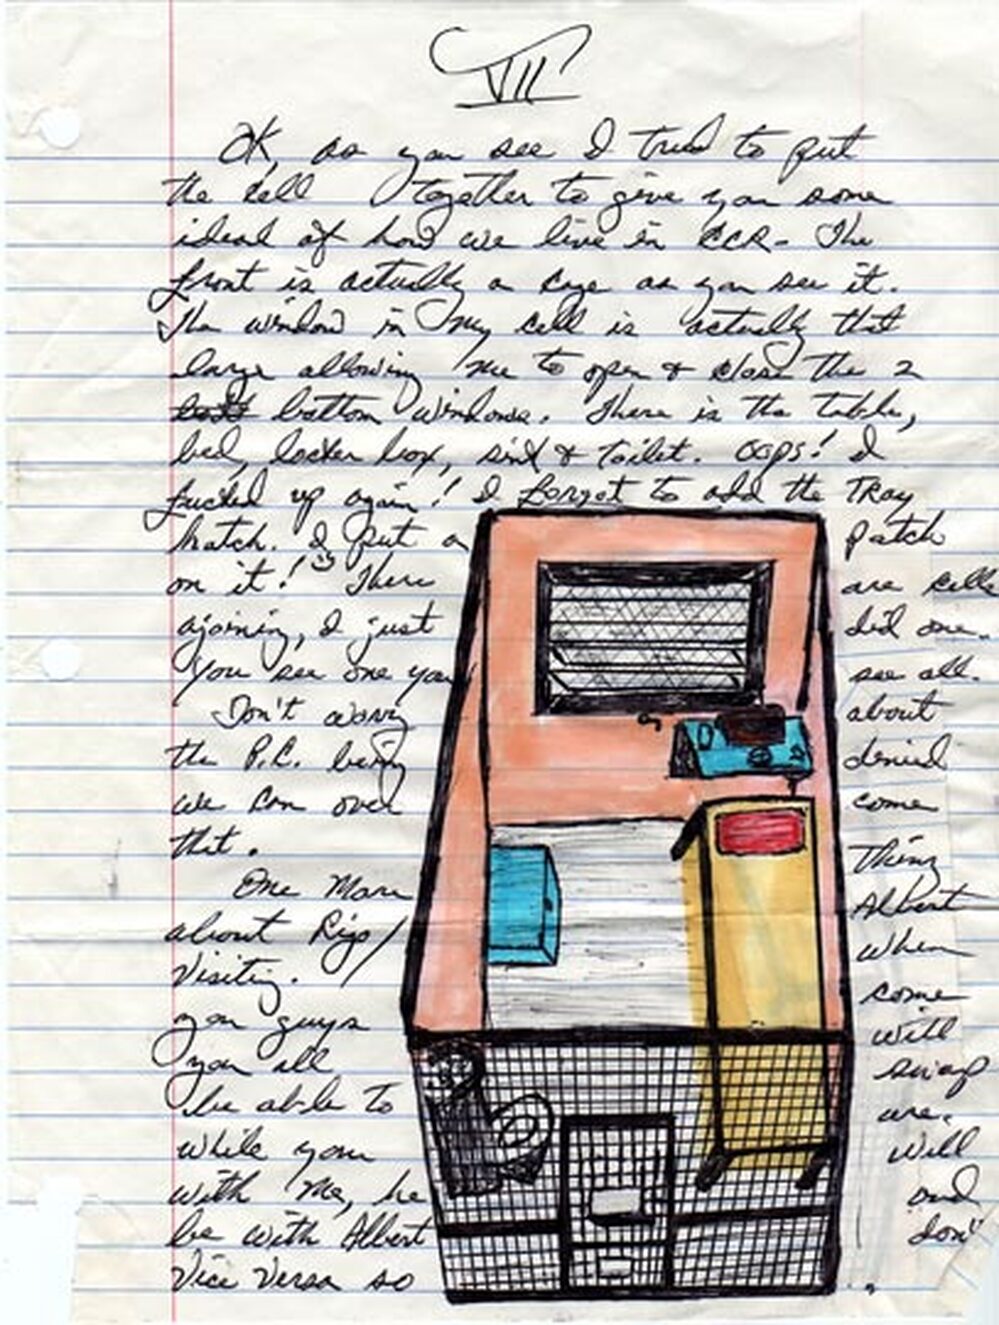 VII
OK, as you see I tried to put
the cell together to give you some
ideal of how we live in CCR- The
front is actually a cage as you see it.
The window in my cell is actually that
large allowing me to open & close the 2
bottom windows. There is the table,
bed, locker box, sink & toilet. OOPS! I
fucked up again! I forget to add the TRay
hatch. I put a patch
on it! There are cells
ajoining, I just did one.
You see one you see all.
Don't worry about
the P.C. being denied
we can over come
that.
One More Thing
about Rigo/ Albert
Visiting. When
you guys come
you all will
be able to swap
while your are.
with me, he will
be with Albert and
Vice Versa so don't